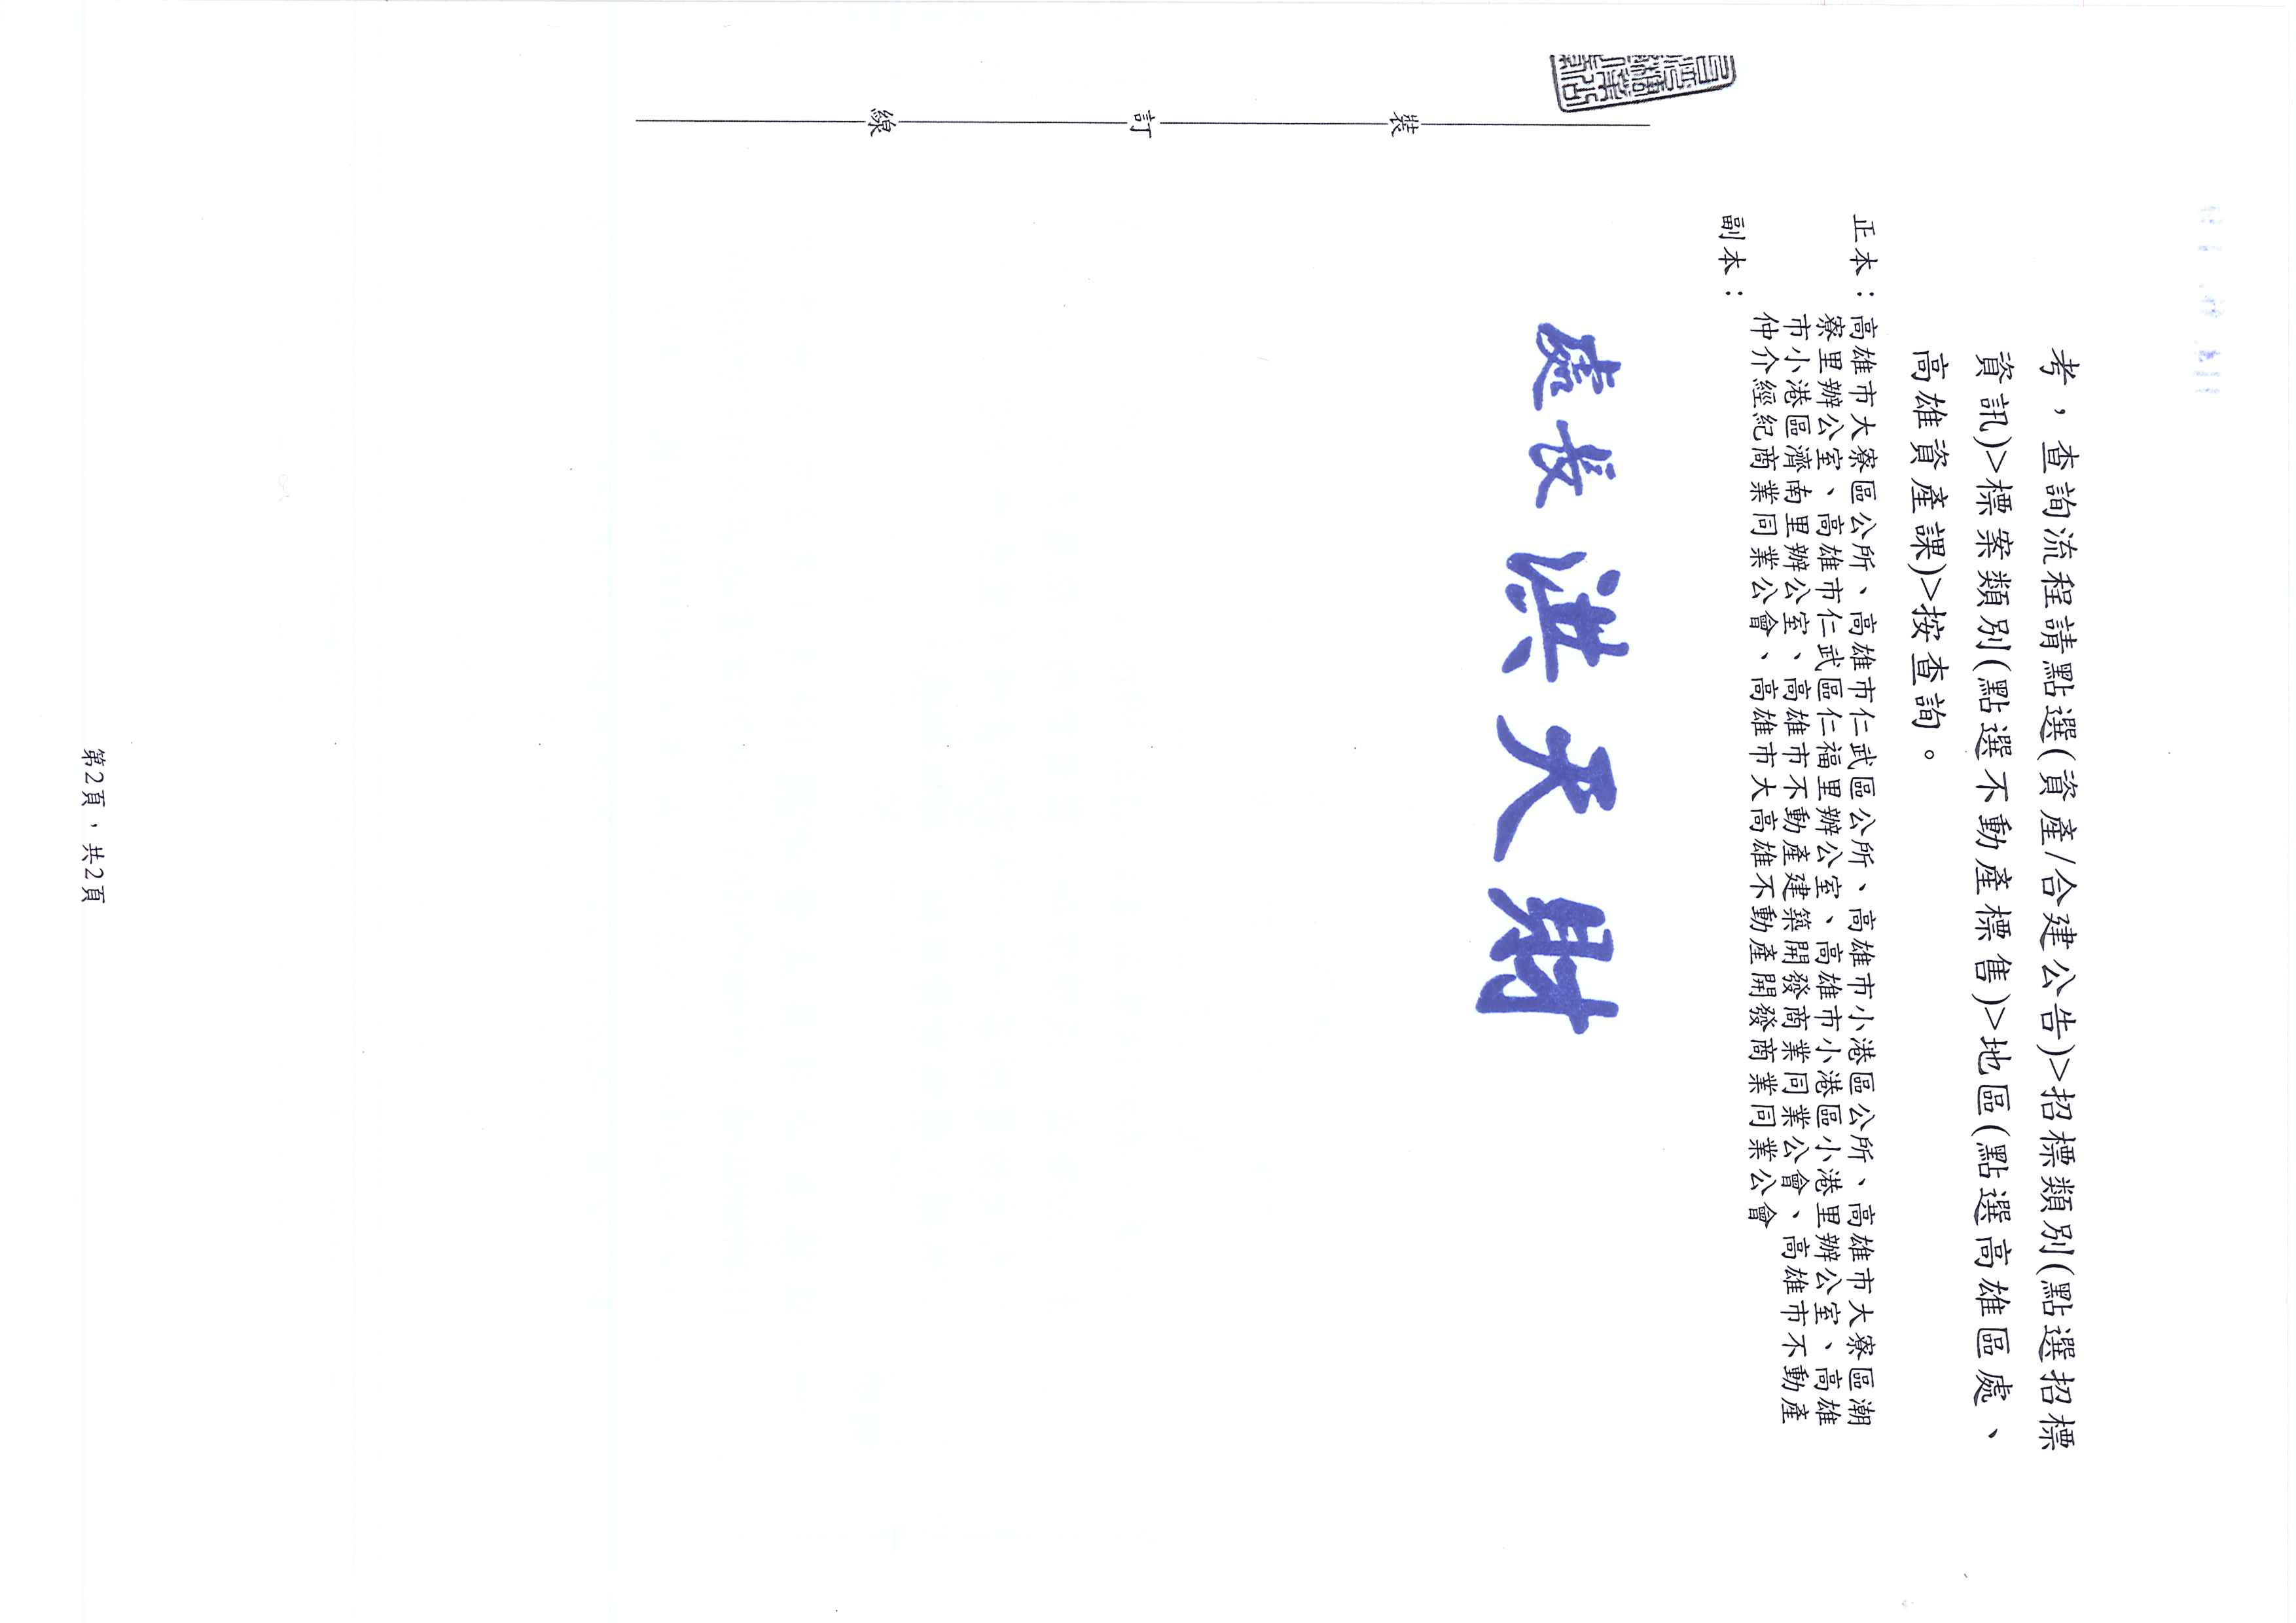 考，查詢流程請點選(資產/合建公告)>招標類別(點選招標
資訊)>標案類別(點選不動產標售)>地區(點選高雄區處、
高雄資產課)>按查詢。
正本：高雄市大寮區公所、高雄市仁武區公所、高雄市小港區公所、高雄市大寮區潮
寮里辦公室、高雄市仁武區仁福里辦公室、高雄市小港區小港里辦公室、高雄
市小港區濟南里辦公室、高雄市不動產建築開發商業同業公會、高雄市不動產
仲介經紀商業同業公會、高雄市大高雄不動產開發商業同業公會
副本：
處長 洪天財
裝
訂
線
第2頁，共2頁